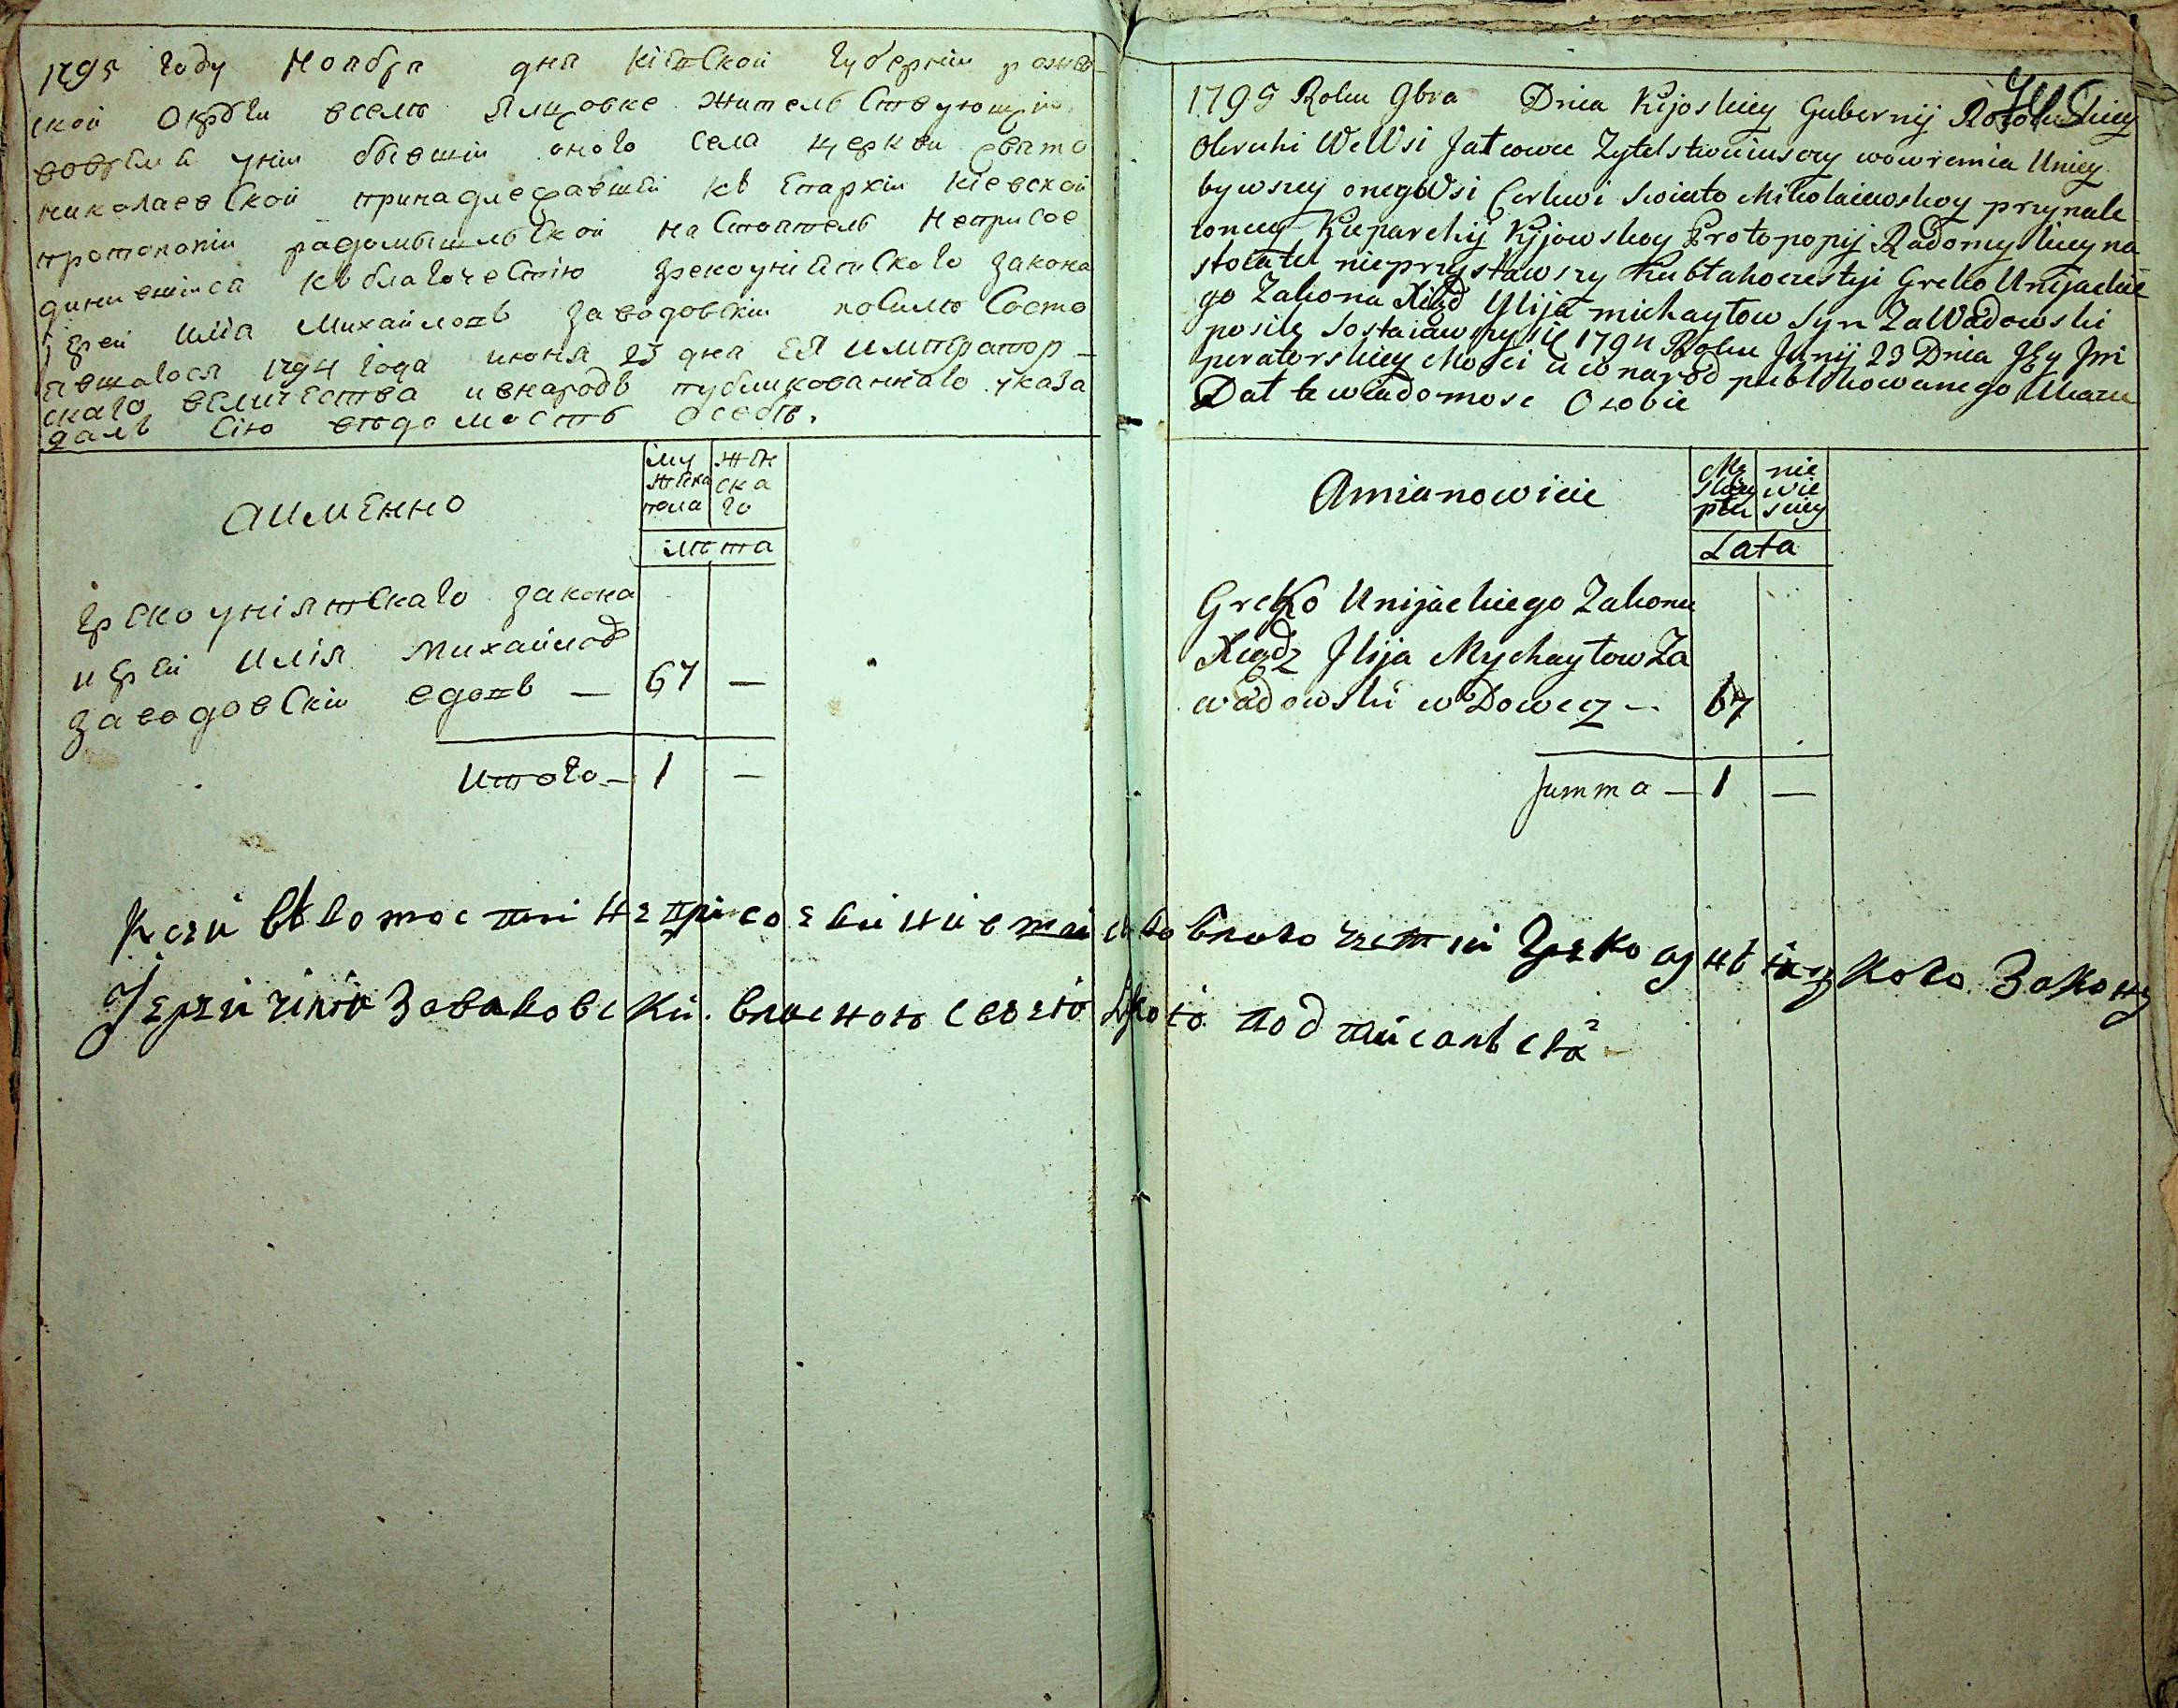 1795 году Ноября дня Кіевской губерніи рожев-
ской округи вселѣ Ялцовке жительствующій
вовремя уніи бывшій оного села церкви свято
николаевской принадлежавшей къ Епархіи Кіевской
протопопіи радомышльской настоятель неприсое
динившійся къ благочестію грекоуніятского закона
іерей Илія Михайловъ Заводовскій посилѣ Состо
явшагося 1794 года июня 23 дня ЕЯ император-
скаго величества ивнародъ публикованнаго указа
далъ Сію вѣдомость особѣ.
аимЕнно
му жеска пола
жен ска го
лѣта
грекоуніятскаго закона
иерей Илія Михайловъ
заводовскій вдовъ — 67 —
Итого — 1 —
1795 Roku 9bra Dnia Kijoskiey Gubernij
Okruhi WeWsi Jatcowce Zytelstwuiuszczy wowremia Uniey
bywszey onegoWsi Cerkwi Swiato Mikolaiewskoy przynale
zoncey Kieparchij Kijowskoy Protopopij Radomyskiey na
stoiatel nieprzystawszy Kubłahoczestyi Greko Unijackie
go Zakona Xiądz Ylija michayłow Syn ZaWadowski
posile Sostaiawszy się 1794 Roku Junij 23 Dnia JEy Jm
peratorskiey Mości i wnarod publikowanego Ukazu
Dał te wiadomosc Osobie
Amianowicie
Mę skey płci
nie wie sciey
Lata
Greko Unijackiego Zakonu
Xiądz Jlija Mychayłow Za
wadowski wDowecz — 67
Summa — 1 —
Ксей вѣдомости неприсоединившійся ко благочестіи Греко унѣіяцкого Закону
Іерей илія Завадовскій власною своею рукою подписалься